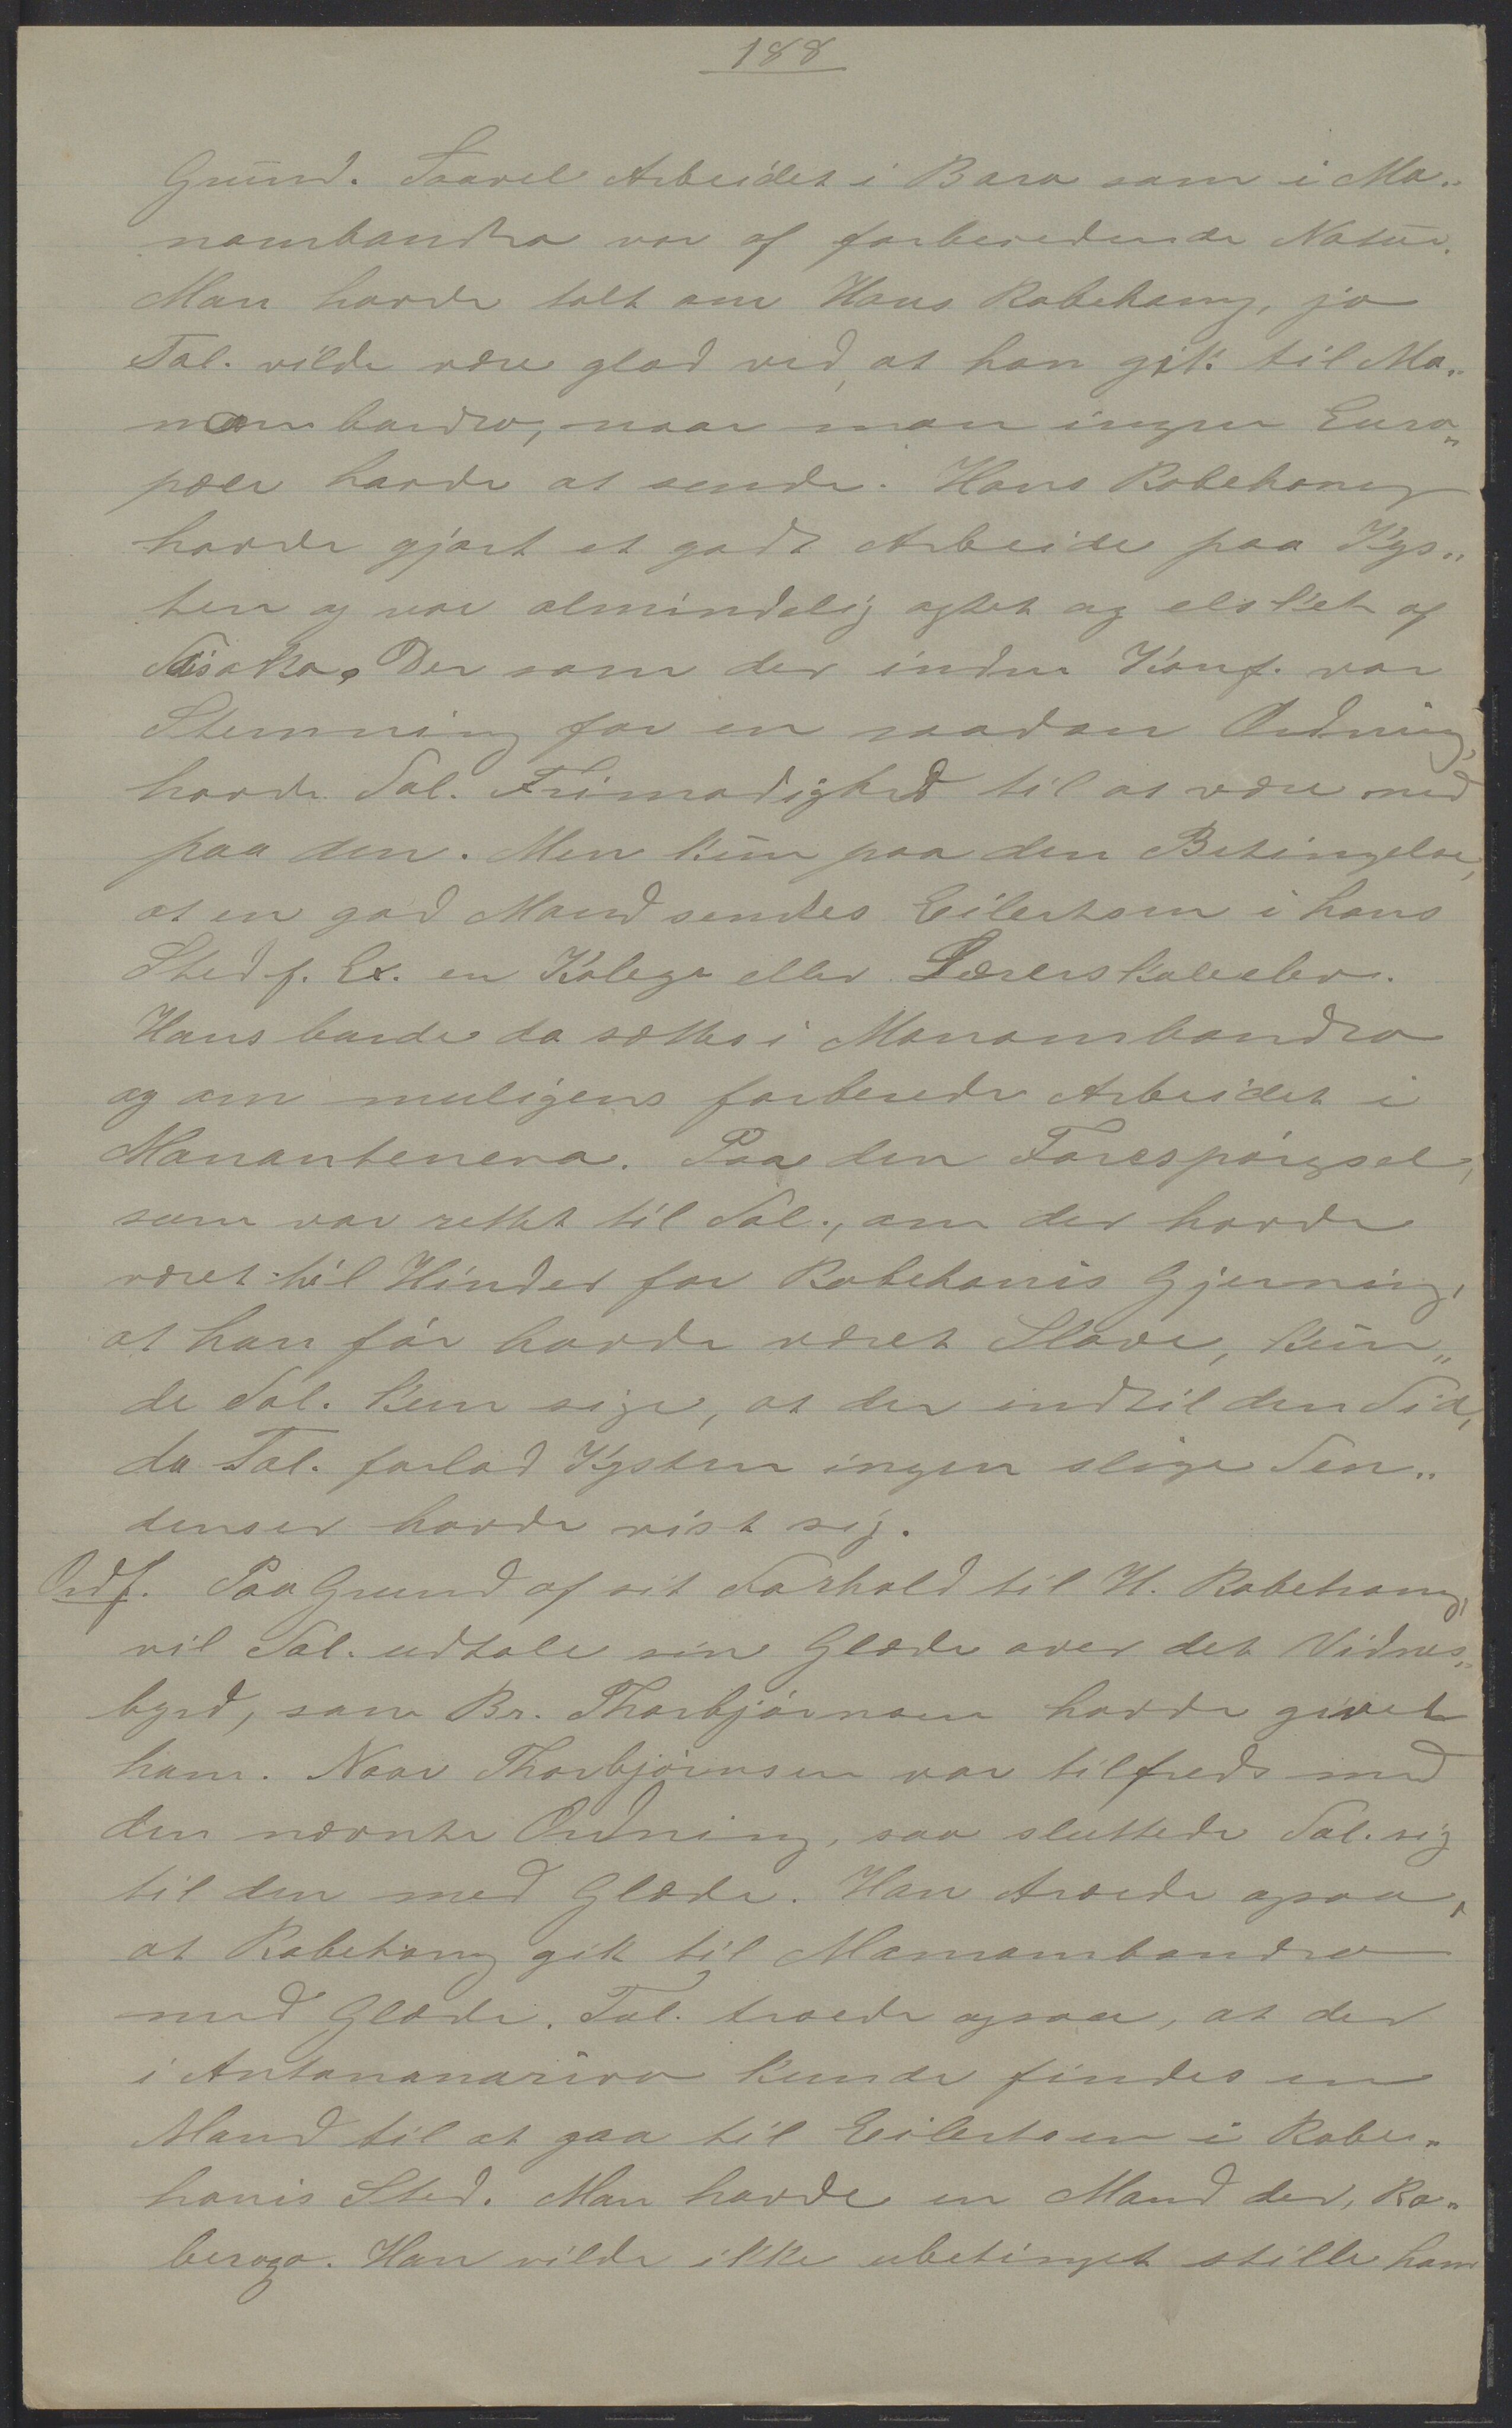 188
Grund. Saavel Arbeidet i Bara som i Ma„
nambondro var af forberedende Natur.
Man havde talt om Hans Rabehany, ja
Tal. vilde være glad ved, at han gik til Ma„
nambondro, naar man ingen Euro„
pæer havde at sende. Hans Rabehany
havde gjort et godt Arbeide paa Kys„
ten og var almindelig agtet og elsket af
Dersom der inden Konf. var
Stemning for en saadan Ordning,
havde Tal. Frimodighed til at være med
paa den. Men kun paa den Betingelse,
at en god Mand sendes Eilertsen i hans
Sted f. Ex. en Kolega eller Lærerskoleelev.
Hans burde da sættes i Manambondro
og om muligens forberede Arbeidet i
Manantenena. Paa den Forespørgsel,
som var rettet til Tal., om der havde
været til Hinder for Rabehanis Gjerning,
at han før havde været Slave, kun„
de Tal. kun sige, at der indtil den Tid,
da Tal. forlod Kysten ingen slige Ten„
denser havde vist sig.
Ordf. Paa Grund af sit Forhold til H. Rabehany,
vil Tal. udtale sin Glæde over det Vidnes„
byrd, som Br. Thorbjørnsen havde givet
ham. Naar Thorbjørnsen var tilfreds med
den nævnte Ordning, saa sluttede Tal. sig
til den med Glæde. Han troede ogsaa,
at Rabehany gik til Manambondro
med Glæde. Tal. troede ogsaa, at der
i Antananarivo kunde findes en
Mand til at gaa til Eilertsen i Rabe„
hanis Sted. Man havde en Mand der, Ra„
beroga. Han vilde ikke ubetinget stille ham